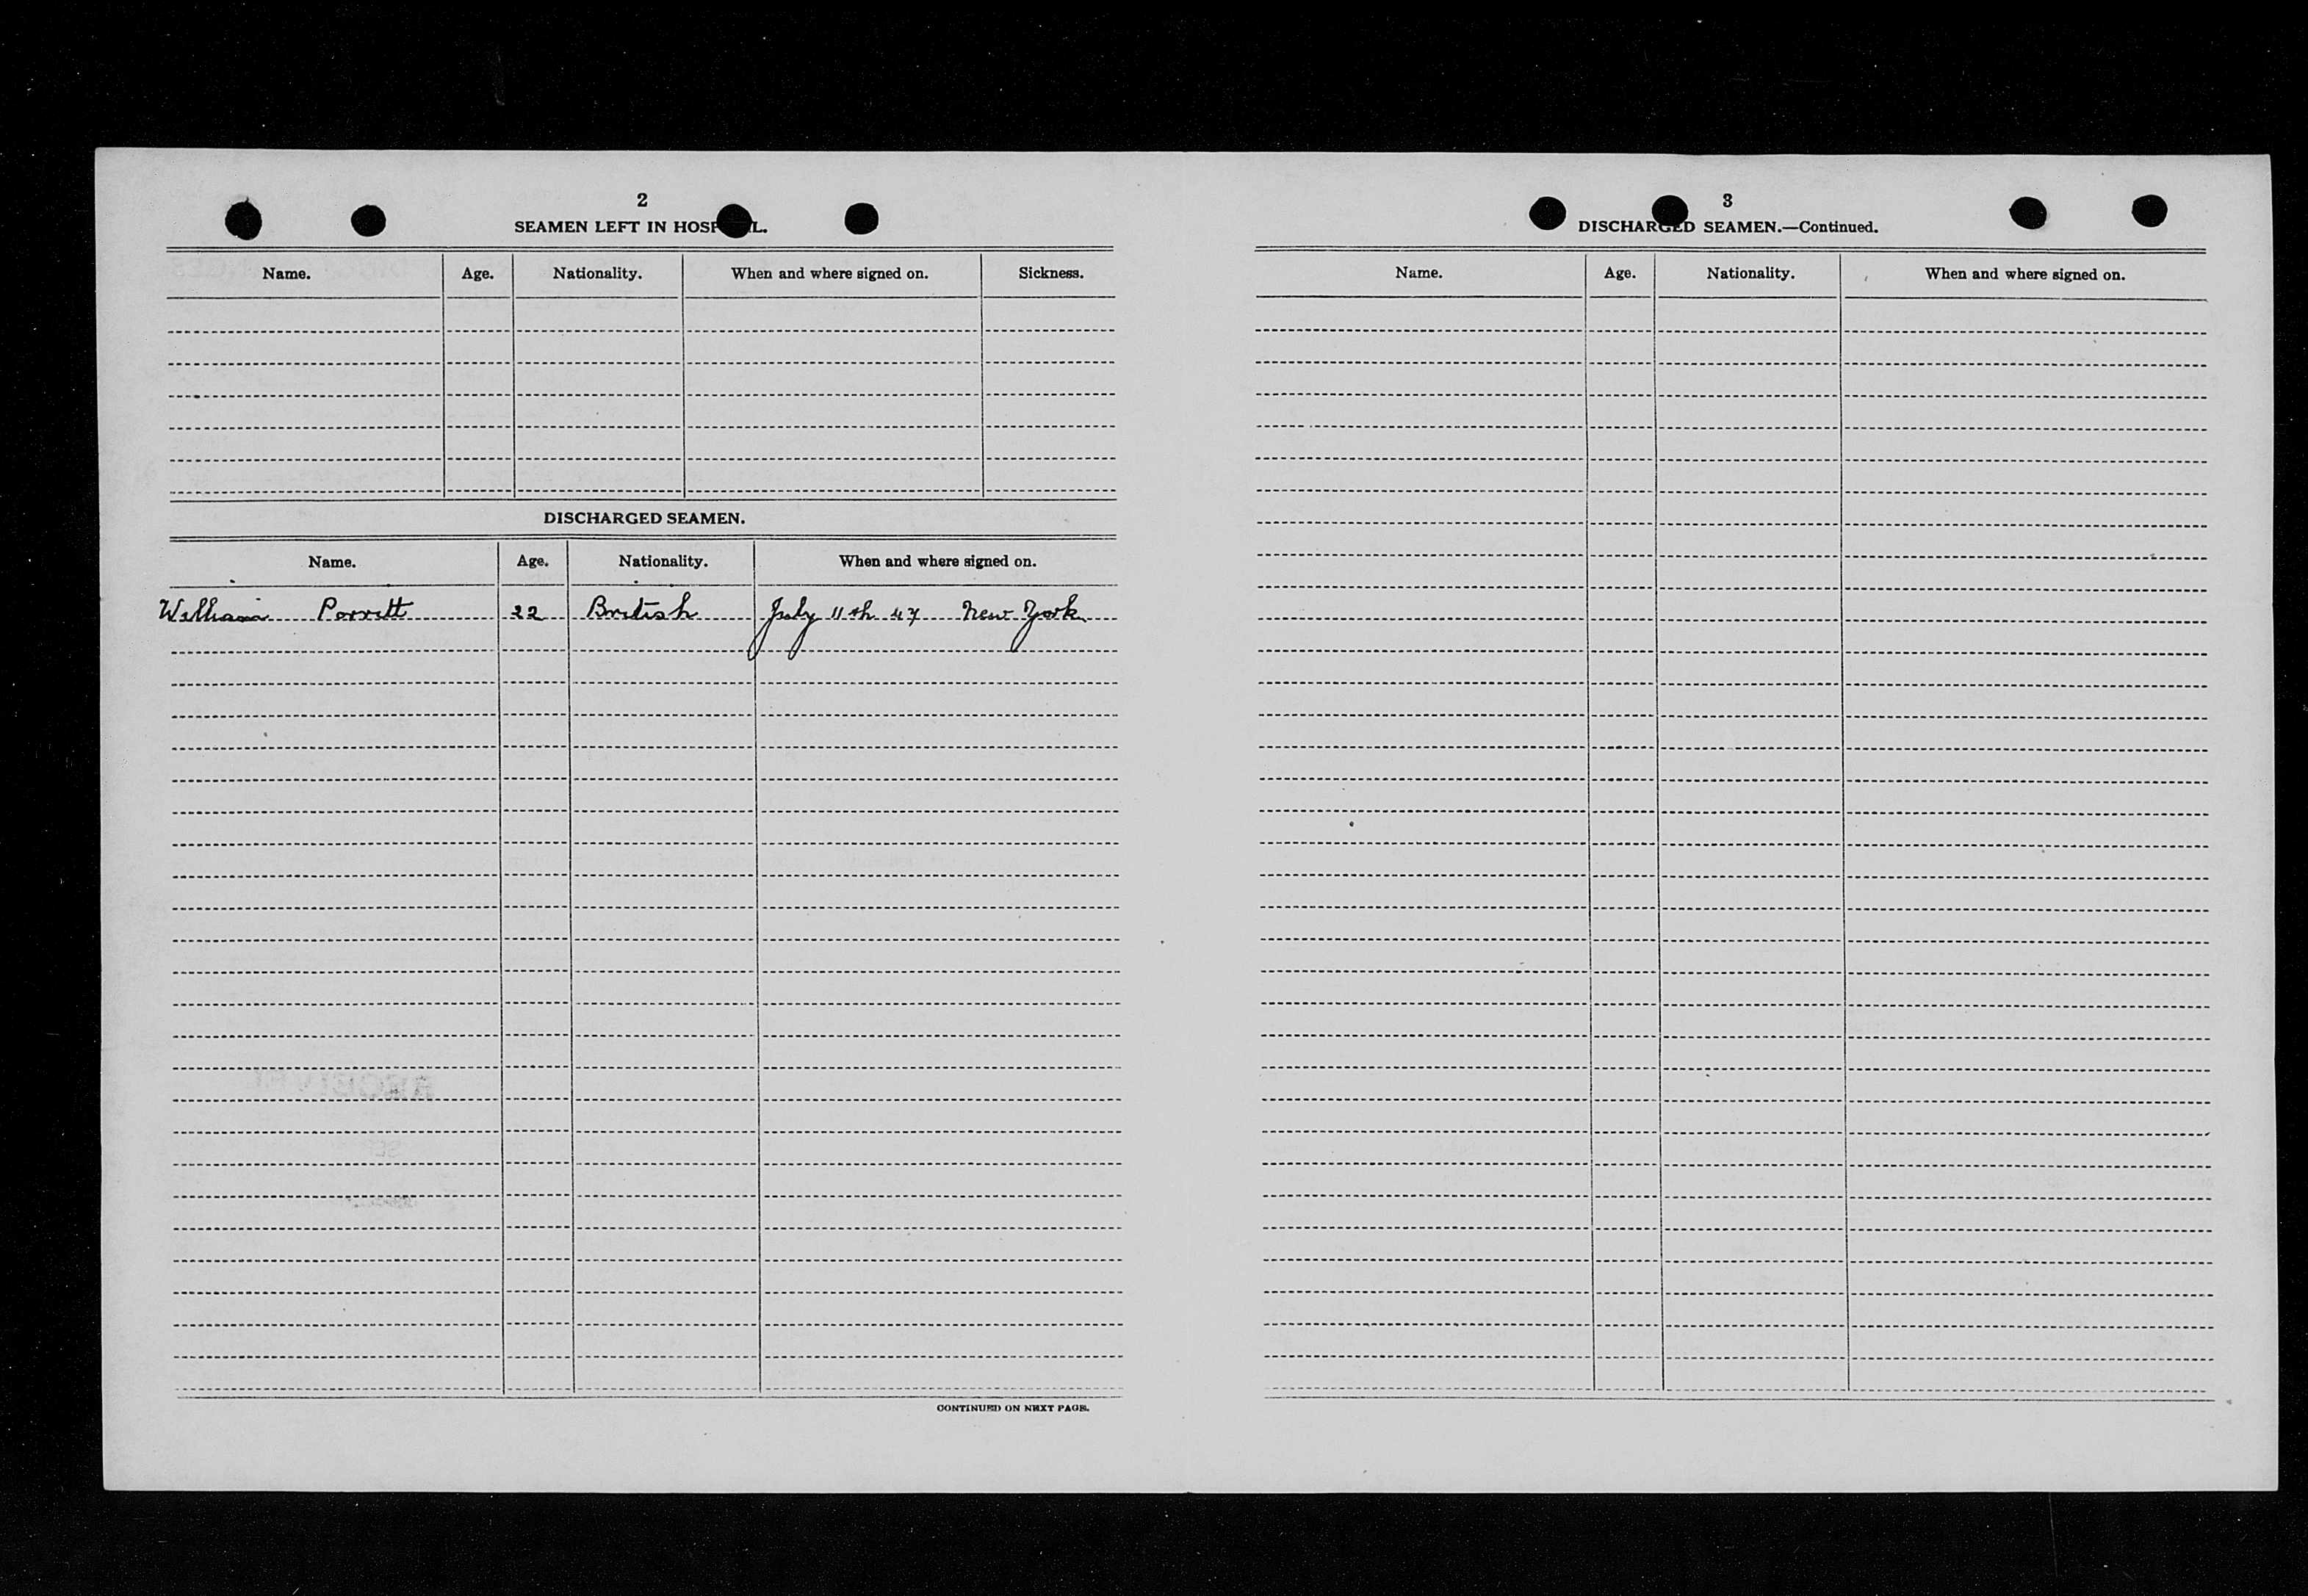 2
SEAMEN LEFT IN HOSP L.
Name. Age. Nationality. When and where signed on. Sickness.
DISCHARGED SEAMEN.
Name. Age. Nationality. When and where signed on.
William Porritt 22 British July 11th 47 New York
CONTINUED ON NEXT PAGE.
3
DISCHARGED SEAMEN.—Continued.
Name. Age. Nationality. When and where signed on.